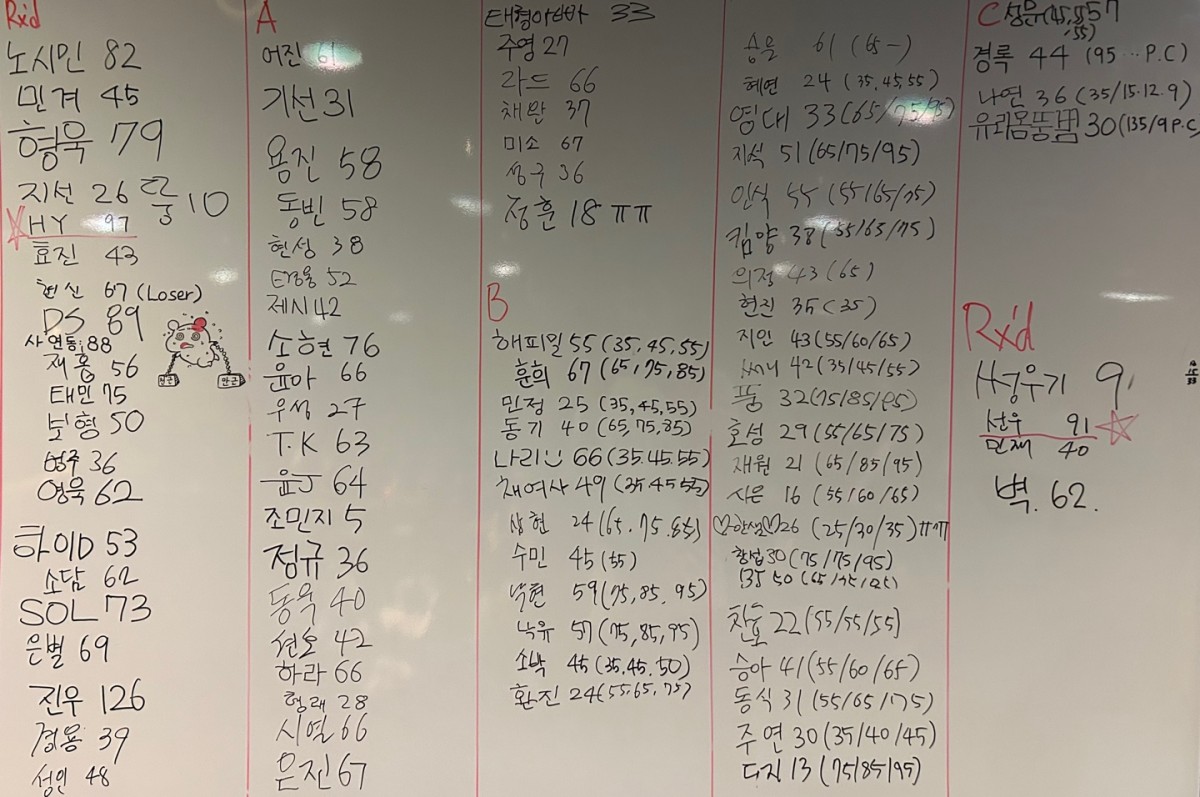 Rx'd
노시민 82
민겨 45
형욱 79
지선 26 줄 10
HY 97
효진 43
현신 67 (Loser)
DS 89
사연동 88
재홍 56
태민 75
보형 50
병주 36
영욱 62
하이D 53
소담 62
SOL 73
은별 69
진우 126
경용 39
성인 48
A
어진 61
기선 31
용진 58
동빈 58
현성 38
52
제시 42
소현 76
윤아 66
우성 27
T.K 63
윤J 64
조민지 5
정규 36
동욱 40
선호 42
하라 66
형래 28
시열 66
은진 67
태형아빠 33
주영 27
라드 66
채완 37
미소 67
성구 36
정훈 18 ㅠㅠ
B
해피일 55 (35, 45, 55)
훈희 67 (65, 75, 85)
민정 25 (35, 45, 55)
동기 40 (65, 75, 85)
나리 66 (35.45.55)
채여사 49 (35 45 55)
상현 24 (65. 75. 85)
수민 45 (55)
낙현 59 (75, 85, 95)
낙유 57 (75, 85, 95)
소박 45 (35. 45. 50)
환진 24 (55. 65, 75)
승윤 61 (65-)
혜연 24 (35, 45, 55)
영대 33 (65/75/95)
지석 51 (65/75/95)
인식 55 (55/65/75)
킴양 38 (55/65/75)
의정 43 (65)
현진 35 (35)
지인 43 (55/60/65)
써니 42 (35/45/55)
뚱 32 (75/85/95)
호성 29 (55/65/75)
재원 21 (65/85/95)
시은 16 (55/60/65)
♡한샘♡ 26 (25/30/35) ㅠㅠ
황섭 30 (75/75/95)
50
찬호 22 (55/55/55)
승아 41 (55/60/65)
동식 31 (55/65/75)
주연 30 (35/40/45)
디진 13 (75/85/95)
C 성윤 (45, 55, 55) 57
경록 44 (95 ... P.C)
나연 36 (35/15.12.9)
유리몸뚱 30 (135/9 P.C
Rx'd
9
선우 91
민재 40
벽. 62.